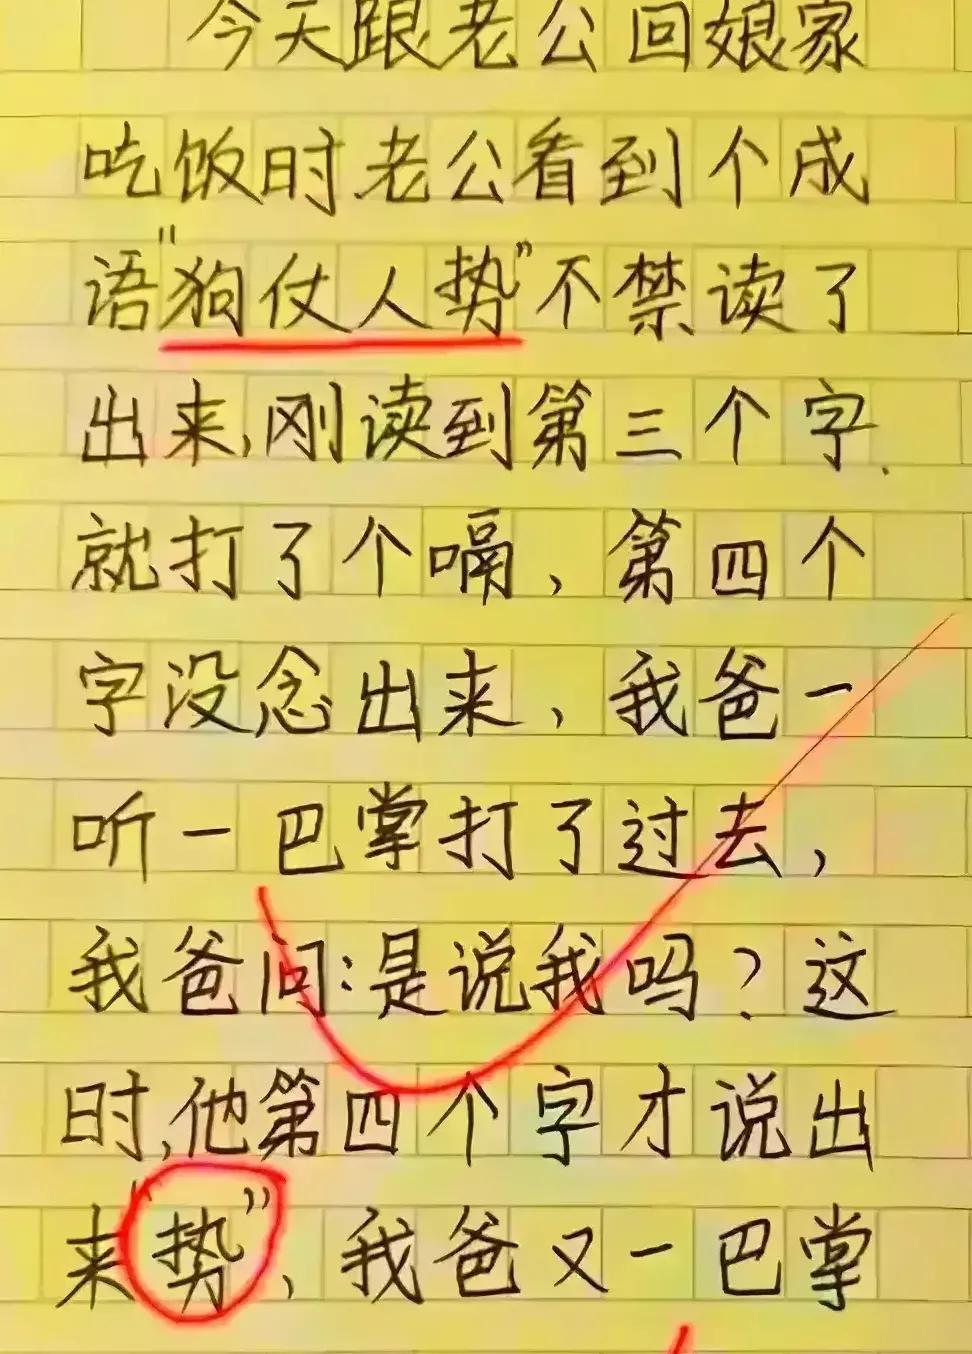 今天跟老公回娘家
吃饭时老公看到个成
语"狗仗人势"不禁读了
出来,刚读到第三个字.
就打了个嗝,第四个
字没念出来,我爸一
听一巴掌打了过去,
我爸问:是说我吗?这
时,他第四个字才说出
来"势",我爸又一巴掌